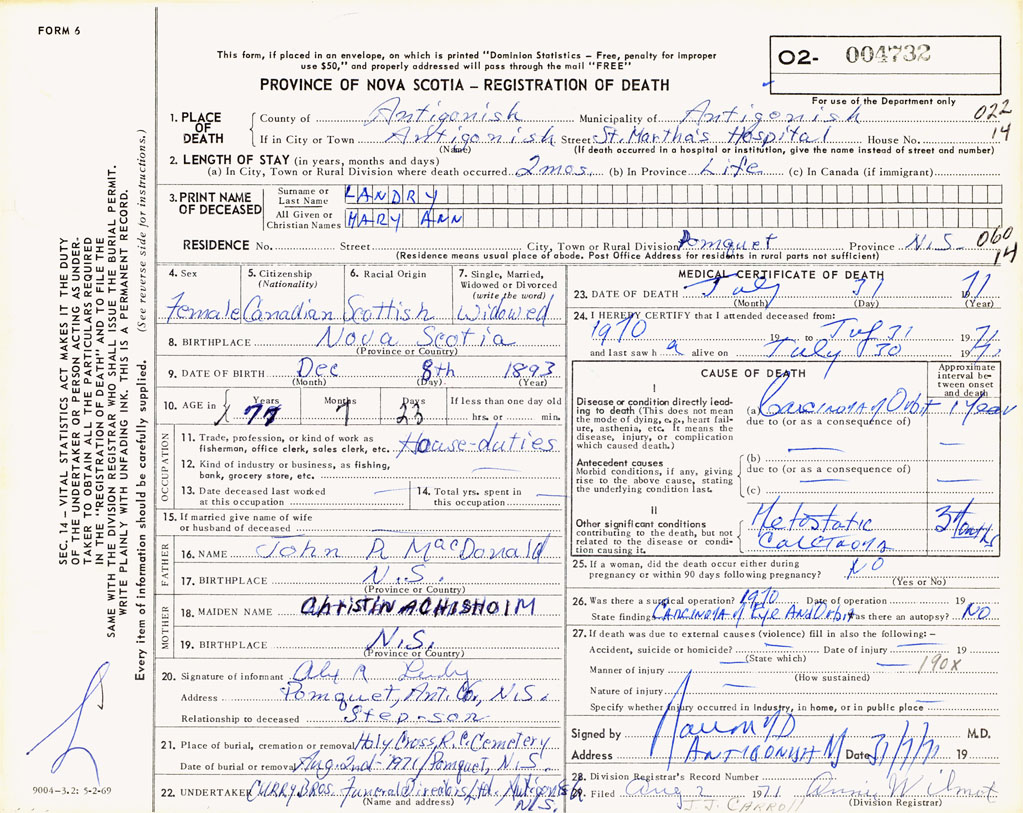 FORM 6
This form, if placed in an envelope, on which is printed "Dominion Statistics – Free, penalty for improper
use $50," and properly addressed will pass through the mail "FREE"
PROVINCE OF NOVA SCOTIA – REGISTRATION OF DEATH
02- 004732
For use of the Department only
1. PLACE OF DEATH
County of Antigonish Municipality of Antigonish 022
If in City or Town Antigonish Street St. Martha's Hospital House No. 14
(Name) (If death occurred in a hospital or institution, give the name instead of street and number)
2. LENGTH OF STAY (in years, months and days)
(a) In City, Town or Rural Division where death occurred 2 mos. (b) In Province Life (c) In Canada (if immigrant)
3. PRINT NAME OF DECEASED
Surname or Last Name LANDRY
All Given or Christian Names MARY ANN
RESIDENCE No. Street City, Town or Rural Division Pomquet Province N.S. 060
(Residence means usual place of abode. Post Office Address for residents in rural parts not sufficient) 14
4. Sex 5. Citizenship (Nationality) 6. Racial Origin 7. Single, Married, Widowed or Divorced (write the word)
Female Canadian Scottish Widowed
8. BIRTHPLACE Nova Scotia
(Province or Country)
9. DATE OF BIRTH Dec 8th 1893
(Month) (Day) (Year)
10. AGE in Years Months Days If less than one day old
77 7 23 hrs. or min.
OCCUPATION
11. Trade, profession, or kind of work as
fisherman, office clerk, sales clerk, etc. House-duties
12. Kind of industry or business, as fishing,
bank, grocery store, etc.
13. Date deceased last worked
at this occupation
14. Total yrs. spent in
this occupation
15. If married give name of wife
or husband of deceased
FATHER
16. NAME John R MacDonald
17. BIRTHPLACE N.S.
(Province or Country)
MOTHER
18. MAIDEN NAME CHRISTINA CHISHOLM
19. BIRTHPLACE N.S.
(Province or Country)
20. Signature of informant
Address Pomquet, Ant. Co., N.S.
Relationship to deceased Step-son
21. Place of burial, cremation or removal Holy Cross R.C. Cemetery
Date of burial or removal Aug. 2nd 1971/Pomquet, N.S.
22. UNDERTAKER CURRY BROS. Funeral Directors Ltd. Antigonish
(Name and address) N.S.
MEDICAL CERTIFICATE OF DEATH
23. DATE OF DEATH July 31 71
(Month) (Day) (Year)
24. I HEREBY CERTIFY that I attended deceased from:
1970 19 to 31 1971
and last saw h alive on July 30 1971
CAUSE OF DEATH
Approximate interval between onset and death
I
Disease or condition directly leading to death (This does not mean the mode of dying, e.g., heart failure, asthenia, etc. It means the disease, injury, or complication which caused death.)
(a) Carcinoma of Orbit 1 Year
due to (or as a consequence of)
Antecedent causes
Morbid conditions, if any, giving rise to the above cause, stating the underlying condition last.
(b)
due to (or as a consequence of)
(c)
II
Other significant conditions
contributing to the death, but not related to the disease or condition causing it.
Metostatic 3 Months
Carcinoma
25. If a woman, did the death occur either during
pregnancy or within 90 days following pregnancy? NO
(Yes or No)
26. Was there a surgical operation? 1970 Date of operation 19
State findings Carcinoma of Eye And Orbit Was there an autopsy? NO
27. If death was due to external causes (violence) fill in also the following: –
Accident, suicide or homicide? Date of injury 19
(State which)
Manner of injury 190X
(How sustained)
Nature of injury
Specify whether injury occurred in industry, in home, or in public place
Signed by M.D.
Address ANTIGONISH NS Date 31/7/71 19
28. Division Registrar's Record Number
29. Filed Aug 2 1971 Annie Wilmot
J.J. CARROLL (Division Registrar)
SEC. 14 – VITAL STATISTICS ACT MAKES IT THE DUTY
OF THE UNDERTAKER OR PERSON ACTING AS UNDER-
TAKER TO OBTAIN ALL THE PARTICULARS REQUIRED
IN THE "REGISTRATION OF DEATH" AND TO FILE THE
SAME WITH THE DIVISION REGISTRAR WHO SHALL ISSUE THE BURIAL PERMIT.
WRITE PLAINLY WITH UNFADING INK. THIS IS A PERMANENT RECORD.
Every item of information should be carefully supplied. (See reverse side for instructions.)
9004-3.2: 5-2-69